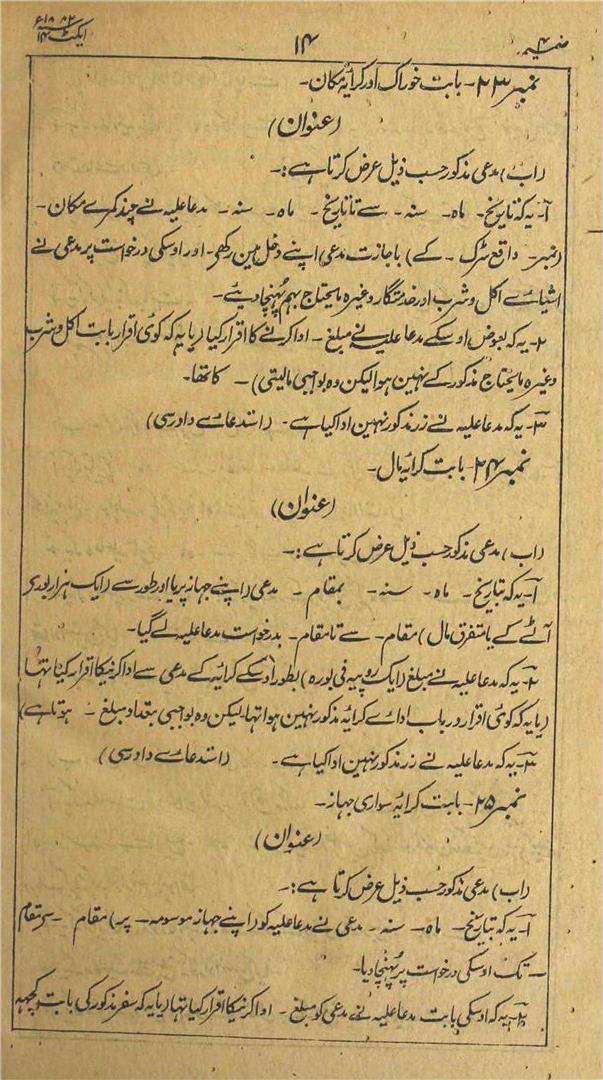 ضمیمہ ۴
۱۴
ایکٹ ۱۴ سنہ ۱۸۸۲ء
نمبر ۲۳۔ بابت خوراک اور کرایۂ مکان۔
(عنوان)
(اب) مدعی مذکور حسب ذیل عرض کرتا ہے:۔
۱۔ یہ کہ تاریخ۔ ماہ۔ سنہ۔ سے تا تاریخ۔ ماہ۔ سنہ۔ مدعاعلیہ نے چند کمرے مکان۔
(نمبر۔ واقع سڑک۔ کے) باجازت مدعی اپنے دخل مین رکھی۔ اور اوسکی درخواست پر مدعی نے
اشیاے اکل و شرب اور خدمتگار وغیرہ مایحتاج بہم پُہنچا دیئے۔
۲۔ یہ کہ بعوض اوسکے مدعاعلیہ نے مبلغ۔ ادا کرنے کا اقرار کیا (یا یہ کہ کوئی اقرار بابت اکل و شرب
وغیرہ مایحتاج مذکور کے نہین ہوا لیکن وہ بواجبی مالیتی)۔ کا تھا۔
۳۔ یہ کہ مدعاعلیہ نے زر مذکور نہین ادا کیا ہے۔ (استدعاے دادرسی)
نمبر ۲۴۔ بابت کرایہ مال۔
(عنوان)
(اب) مدعی مذکور حسب ذیل عرض کرتا ہے:۔
۱۔ یہ کہ بتاریخ۔ ماہ۔ سنہ۔ بمقام۔ مدعی (اپنے جہاز پر یا اور طور سے (ایک ہزار بورے
آٹے کے یا متفرق مال) مقام۔ سے تا مقام۔ بدرخواست مدعاعلیہ لے گیا۔
۲۔ یہ کہ مدعاعلیہ نے مبلغ (ایک روپیہ فی بورہ) بطور اوسکے کرایہ کے مدعی سے ادا کرنیکا اقرار کیا تہا
(یا یہ کہ کوئی اقرار درباب اداے کرایہ مذکور نہین ہوا تہا لیکن وہ بواجبی بقدار مبلغ۔ ہوتا ہے)
۳۔ یہ کہ مدعاعلیہ نے زر مذکور نہین ادا کیا ہے۔ (استدعاے دادرسی)
نمبر ۲۵۔ بابت کرایہ سواری جہاز۔
(عنوان)
(اب) مدعی مذکور حسب ذیل عرض کرتا ہے:۔
۱۔ یہ کہ بتاریخ۔ ماہ۔ سنہ۔ مدعی نے مدعاعلیہ کو (اپنے جہاز موسومہ۔ پر) مقام۔ سے مقام
۔ تک اوسکی درخواست پر پُہنچا دیا۔
۲۔ یہ کہ اوسکی بابت مدعاعلیہ نے مدعی کو مبلغ۔ ادا کرنیکا اقرار کیا تہا (یا یہ کہ سفر مذکور کی بابت کچھہ